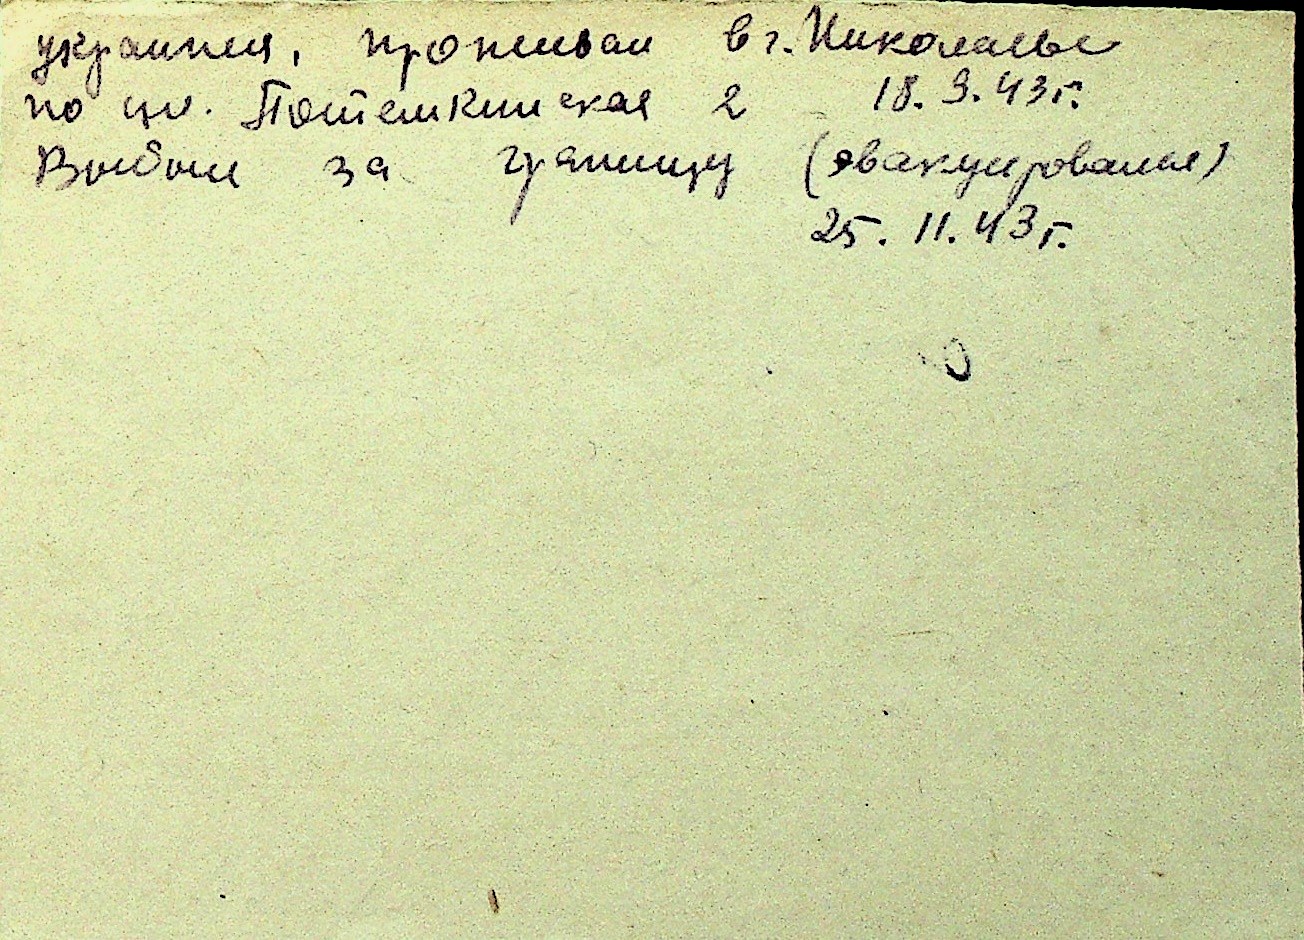 украинец, проживал в г. Николаеве
по ул. Потемкинская 2 18.9.43г.
Выбыл за границу (эвакуировался)
25.11.43г.